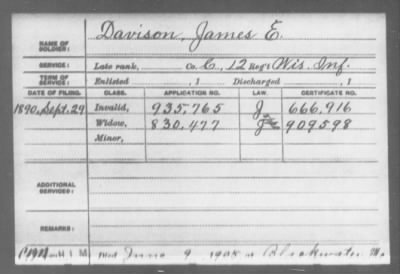 NAME OF SOLDIER: Davison, James E.
SERVICE: Late rank, Co. C, 12 Reg't Wis. Inf.
TERM OF SERVICE: Enlisted , 1 Discharged , 1
DATE OF FILING. CLASS. APPLICATION NO. LAW. CERTIFICATE NO.
1890, Sept. 29 Invalid, 935.765 J 666.916
Widow, 830.477 909598
Minor,
ADDITIONAL SERVICES:
REMARKS:
June 9 1904